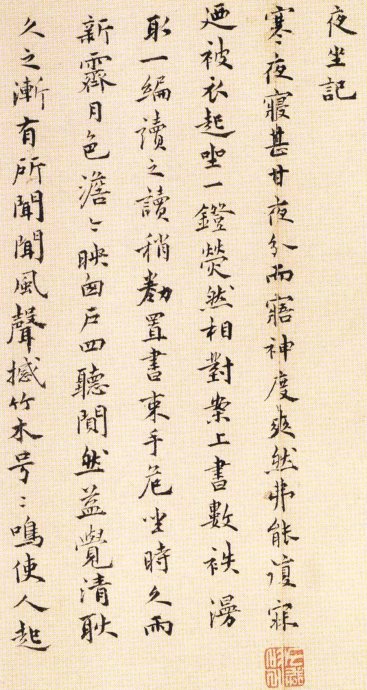 夜坐記
寒夜寢甚甘夜分而寤神度爽然弗能復寐
迺被衣起坐一鐙熒然相對案上書數袟漫
取一編讀之讀稍勌置書束手危坐時久雨
新霽月色澹〻映囱戶四聽閴然益覺清耿
久之漸有所聞聞風聲撼竹木号〻鳴使人起